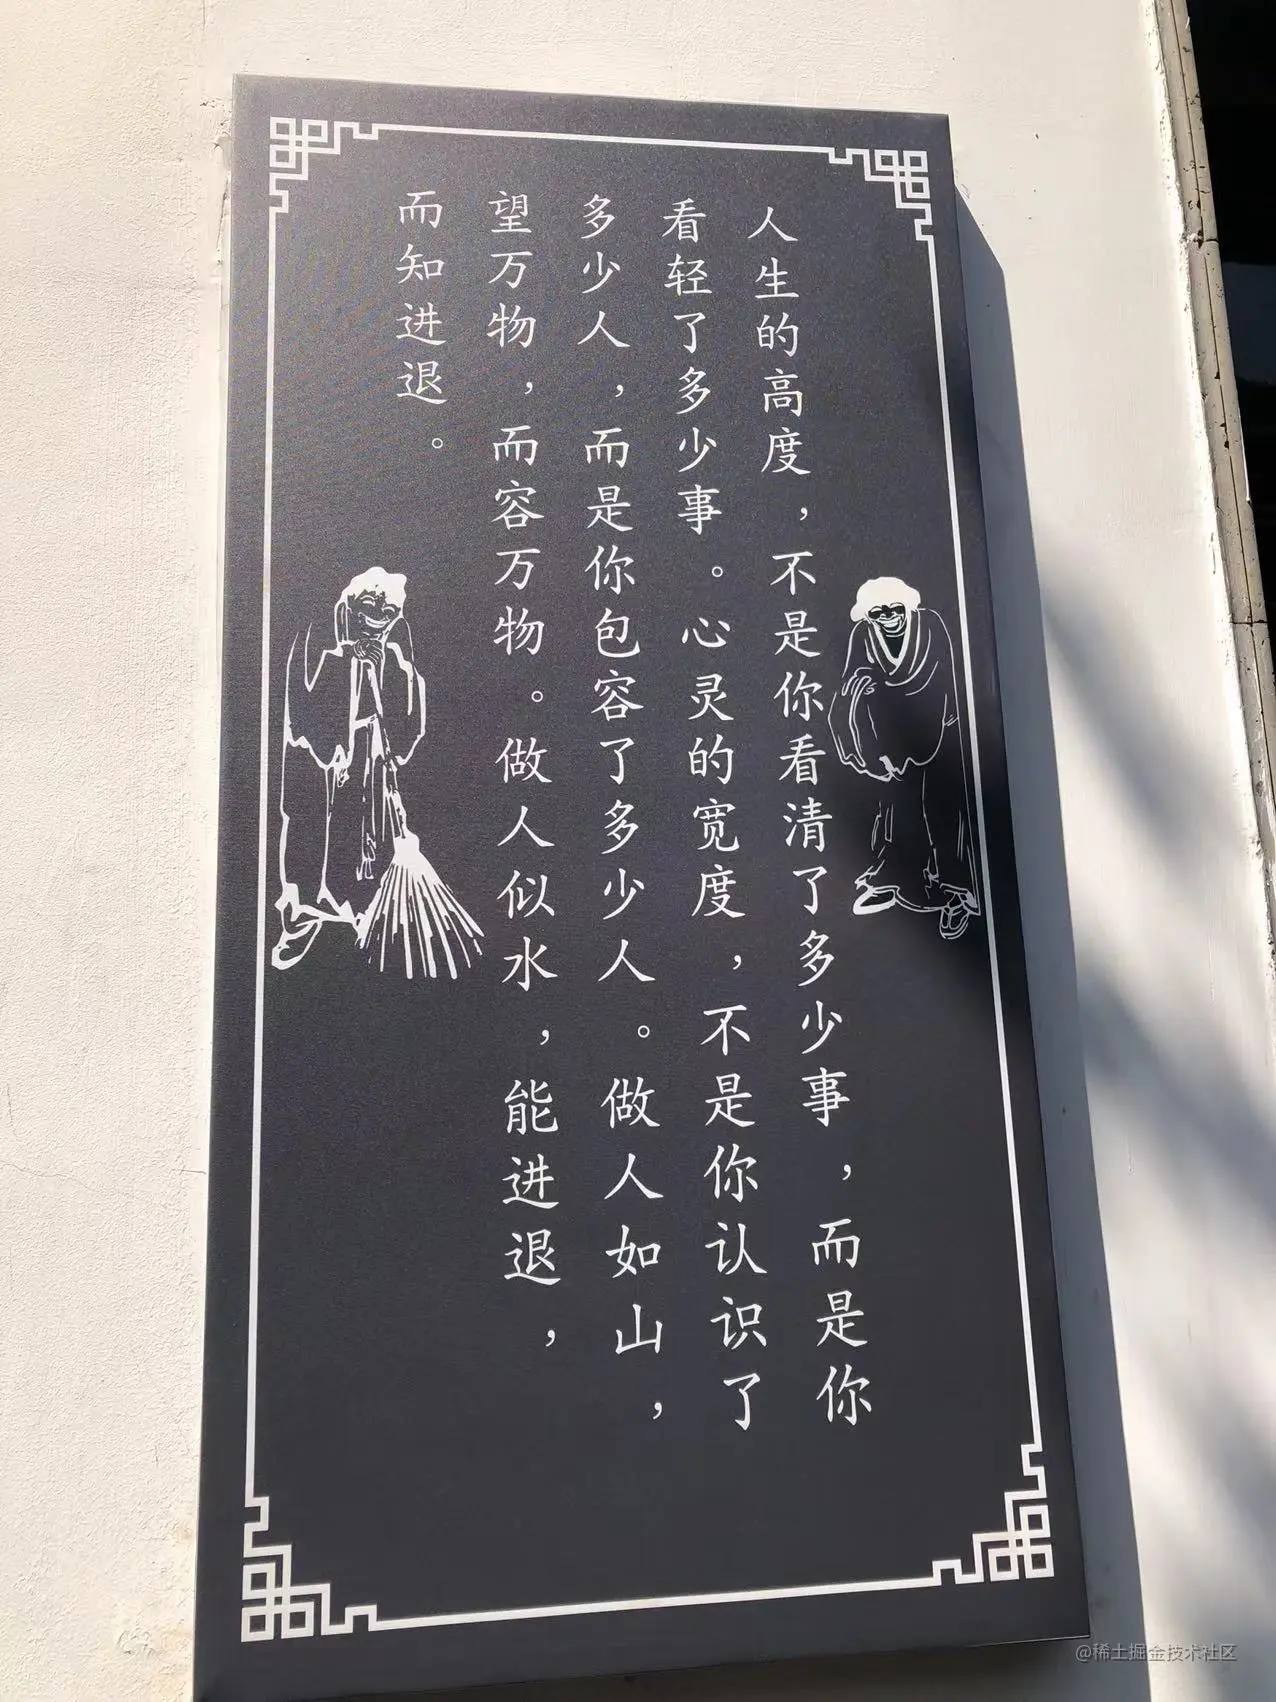 人生的高度，不是你看清了多少事，而是你
看轻了多少事。心灵的宽度，不是你认识了
多少人，而是你包容了多少人。做人如山，
望万物，而容万物。做人似水，能进退，
而知进退。
@稀土掘金技术社区